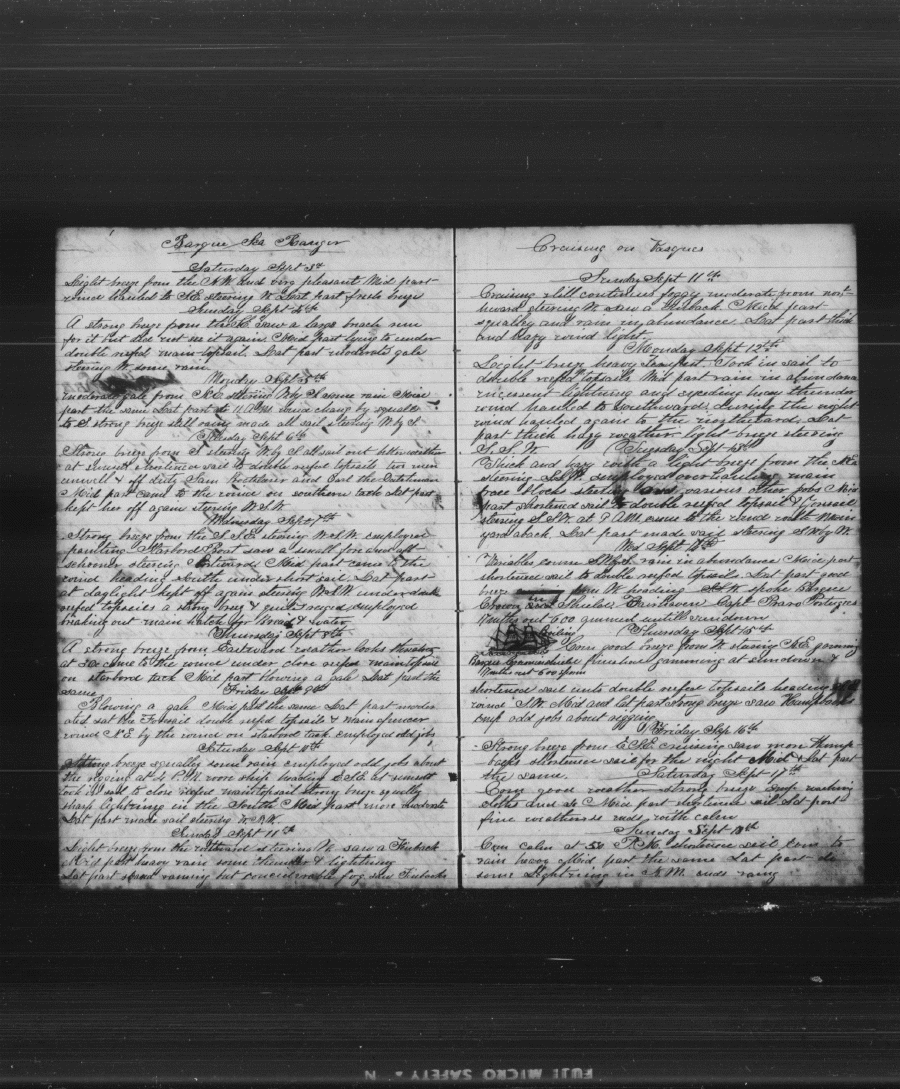 Barque Sea Ranger
Saturday Sept 3d
Light breeze from the N.W. and very pleasant Mid part
wind hauled to S.E. steering W. Last part fresh breeze
Sunday Sept 4th
A strong breeze from the S.E. Saw a large breach run
for it but did not see it again. Mid part lying to under
double reefed main topsail. Last part moderate gale
steering W. some rain
Monday Sept 5th
moderate gale from S.E. steering W by S some rain Mid
part the same Last part at 11 AM wind chang by squalls
to S strong breeze still rainy made all sail steering W by S
Tuesday Sept 6th
Strong breeze from S steering W by S all sail out
at sunset shortened sail to double reefed topsails two men
unwell & off duty Sam and Carl the Dutchman
Mid part came to the wind on southern tack Lat part
kept her off again steering W.S.W.
Wednesday Sept 7th
Strong breeze from the S.S.E. steering W.S.W. employed
painting Starbord Boat saw a small fore and aft
schooner steering Eastward Mid part came to the
wind heading South under short sail. Last part
at daylight kept off again steering W.S.W. under double
reefed topsails a strong breeze & employed
breaking out main hatch for bread & water
Thursday Sept 8th
A strong breeze from Eastward weather looks
at came to the wind under close reefed maintopsail
on starbord tack Mid part blowing a gale Last part the
same
Friday Sept 9th
Blowing a gale Mid pt the same Last part moder
ated set the Foresail double reefed topsails & main spencer
round N.E. by the wind on starbord tack employed odd jobs
Saturday Sept 10th
Strong breeze squally some rain employed odd jobs about
the rigging at 4 P.M. wore ship heading S.S.E. at sunset
took in sail to close reefed maintopsail strong breeze squally
sharp lightning in the South Mid part more moderate
Lat part made sail steering W.S.W.
Sunday Sept 11th
Light breeze from the northward steering W. saw a Finback
Mid part heavy rain some thunder & lightning
Lat part rainy but considerable fog saw Finbacks
Cruising on Vasques
Sunday Sept 11th
Cruising still continues foggy moderate from nor-
thward steering W. saw a Finback. Mid part
squally and rain in abundance. Lat part thick
and hazy wind light.
Monday Sept 12th
Leight breeze heavy Took in sail to
double reefed topsails Mid part rain in abundance
incessent lightning and heavy thunder
wind hauled to Southward during the night
wind hauled again to the northward. Lat
part thick hazy weather light breeze steering
S.S.W.
Tuesday Sept 13th
Thick and hazy with a light breeze from the N.E.
steering S.S.W. employed overhauling main
brace blocks and various other jobs Mid
part shortened sail to double reefed topsail & Foresail
steering S.S.W. at 8 AM came to the wind with Main
yard aback. Lat part made sail steering S.W. by W.
Wed Sept 14th
Variables rain in abundance Mid part
shortened sail to double reefed topsails. Lat part good
breeze from W. heading S.S.W. spoke Barque
Fairhaven Capt
Months out 600 gammed untill sundown
Thursday Sept 15th
Come good breeze from W. steering N.E. gamming
Barque Commodore finished gamming at sundown &
shortened sail unto double reefed topsails heading
wind S.W. Mid and lat part strong breeze saw Humpbacks
emp odd jobs about rigging
Friday Sept 16th
Strong breeze from E.S.E. cruising saw more Hump-
backs shortened sail for the night Mid & Lat part
the same.
Saturday Sept 17th
Come good weather strong breeze emp washing
clothes Mid part shortened sail Lat part
fine weather ends with calm
Sunday Sept 18th
Com calm at P.M. shortened sail Com to
rain heavy Mid part the same Lat part do
some Lightning in N.W. ends rainy
FUJI MICRO SAFETY - N